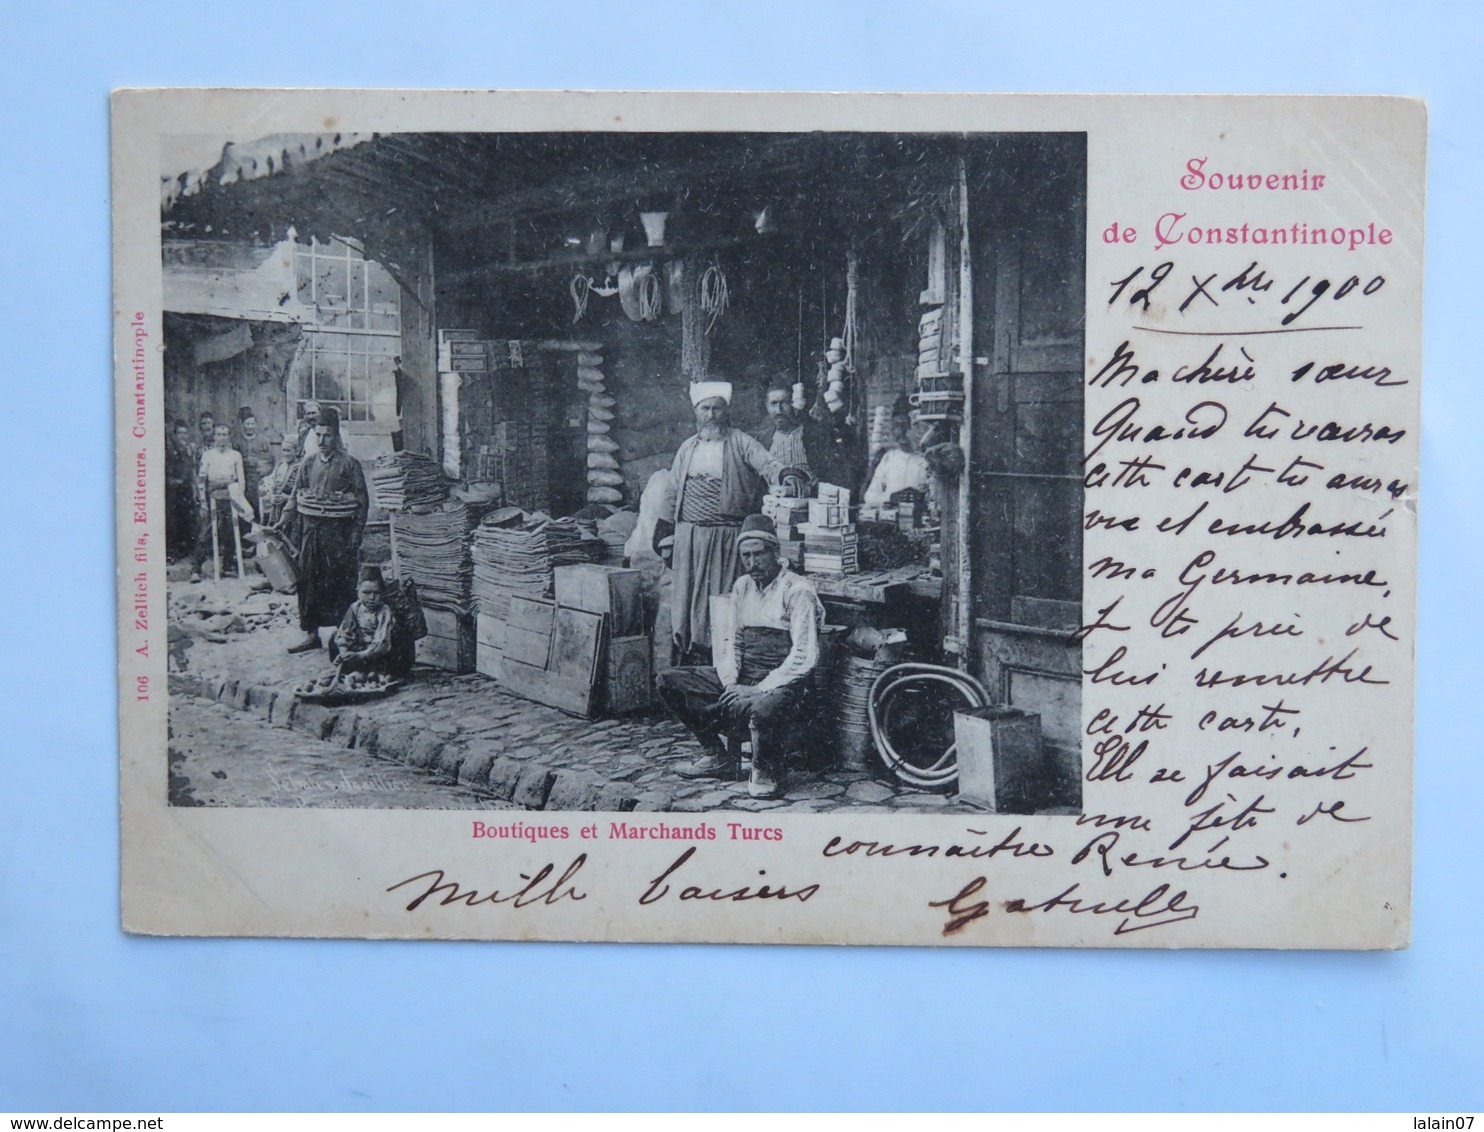 Souvenir
de Constantinople
12 Xbre 1900
Ma chère sœur
Quand tu recevras
cette carte tu auras
vu et embrassée
ma Germaine,
Je te prie de
lui remettre
cette carte,
Elle se faisait
une fête de
connaître Renée.
Mille baisers
Gabrielle
Boutiques et Marchands Turcs
106 A. Zellich fils, Editeurs, Constantinople
delcampe.net
lalain07